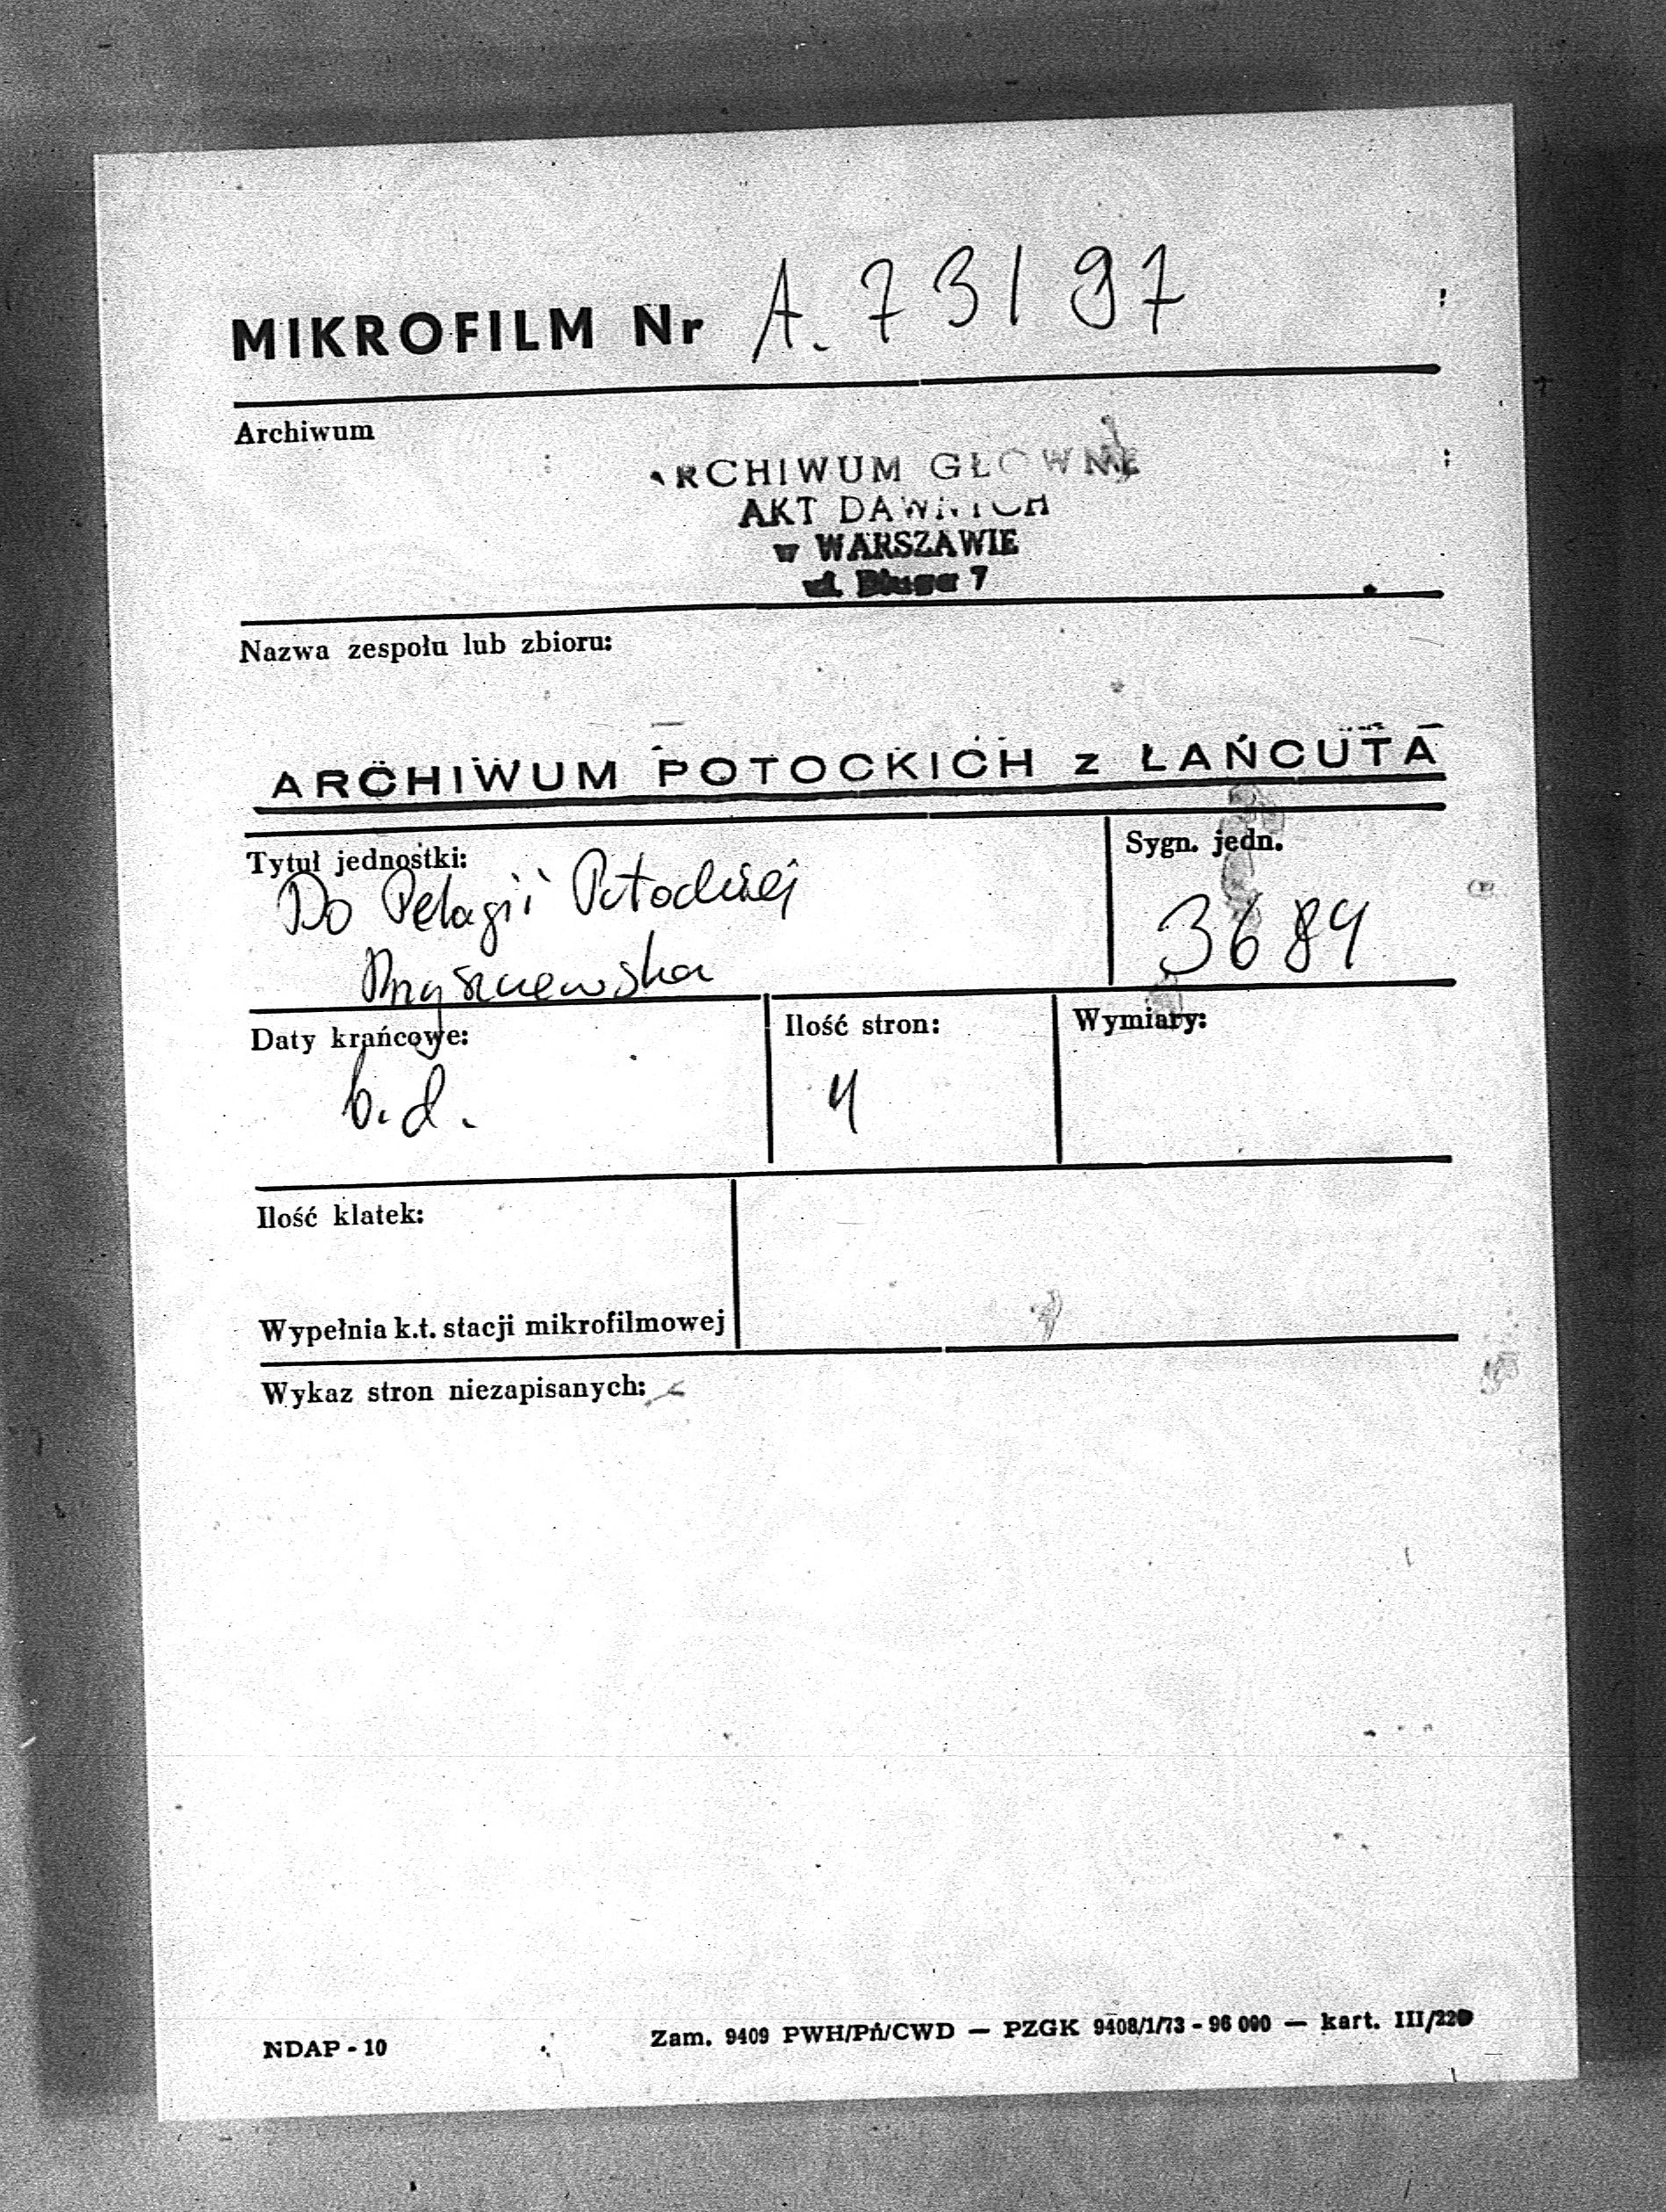 MIKROFILM Nr A. 73197
Archiwum
ARCHIWUM GŁOWNE
AKT DAWNYCH
w WARSZAWIE
ul. Długa 7
Nazwa zespołu lub zbioru:
ARCHIWUM POTOCKICH z ŁAŃCUTA
Tytuł jednostki:
Do Pelagii Potockiej
Sygn. jedn.
3684
Daty krańcowe:
b.d.
Ilość stron:
4
Wymiary:
Ilość klatek:
Wypełnia k.t. stacji mikrofilmowej
Wykaz stron niezapisanych:
NDAP - 10
Zam. 9409 PWH/Pń/CWD — PZGK 9408/1/73 - 96 000 — kart. III/220